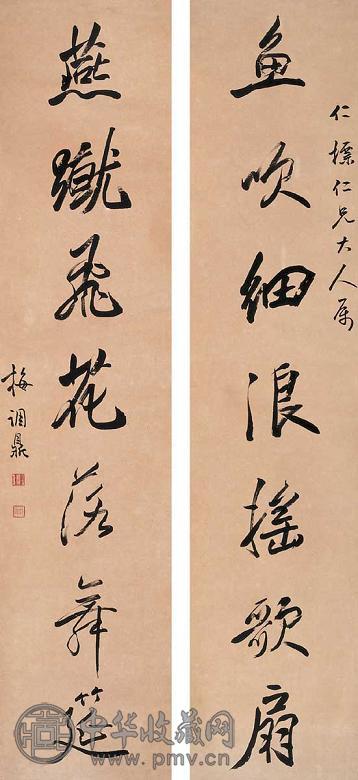 仁檫仁兄大人属
鱼吹细浪摇歌扇
燕蹴飞花落舞筵
梅调鼎
中华收藏网
www.pmv.cn